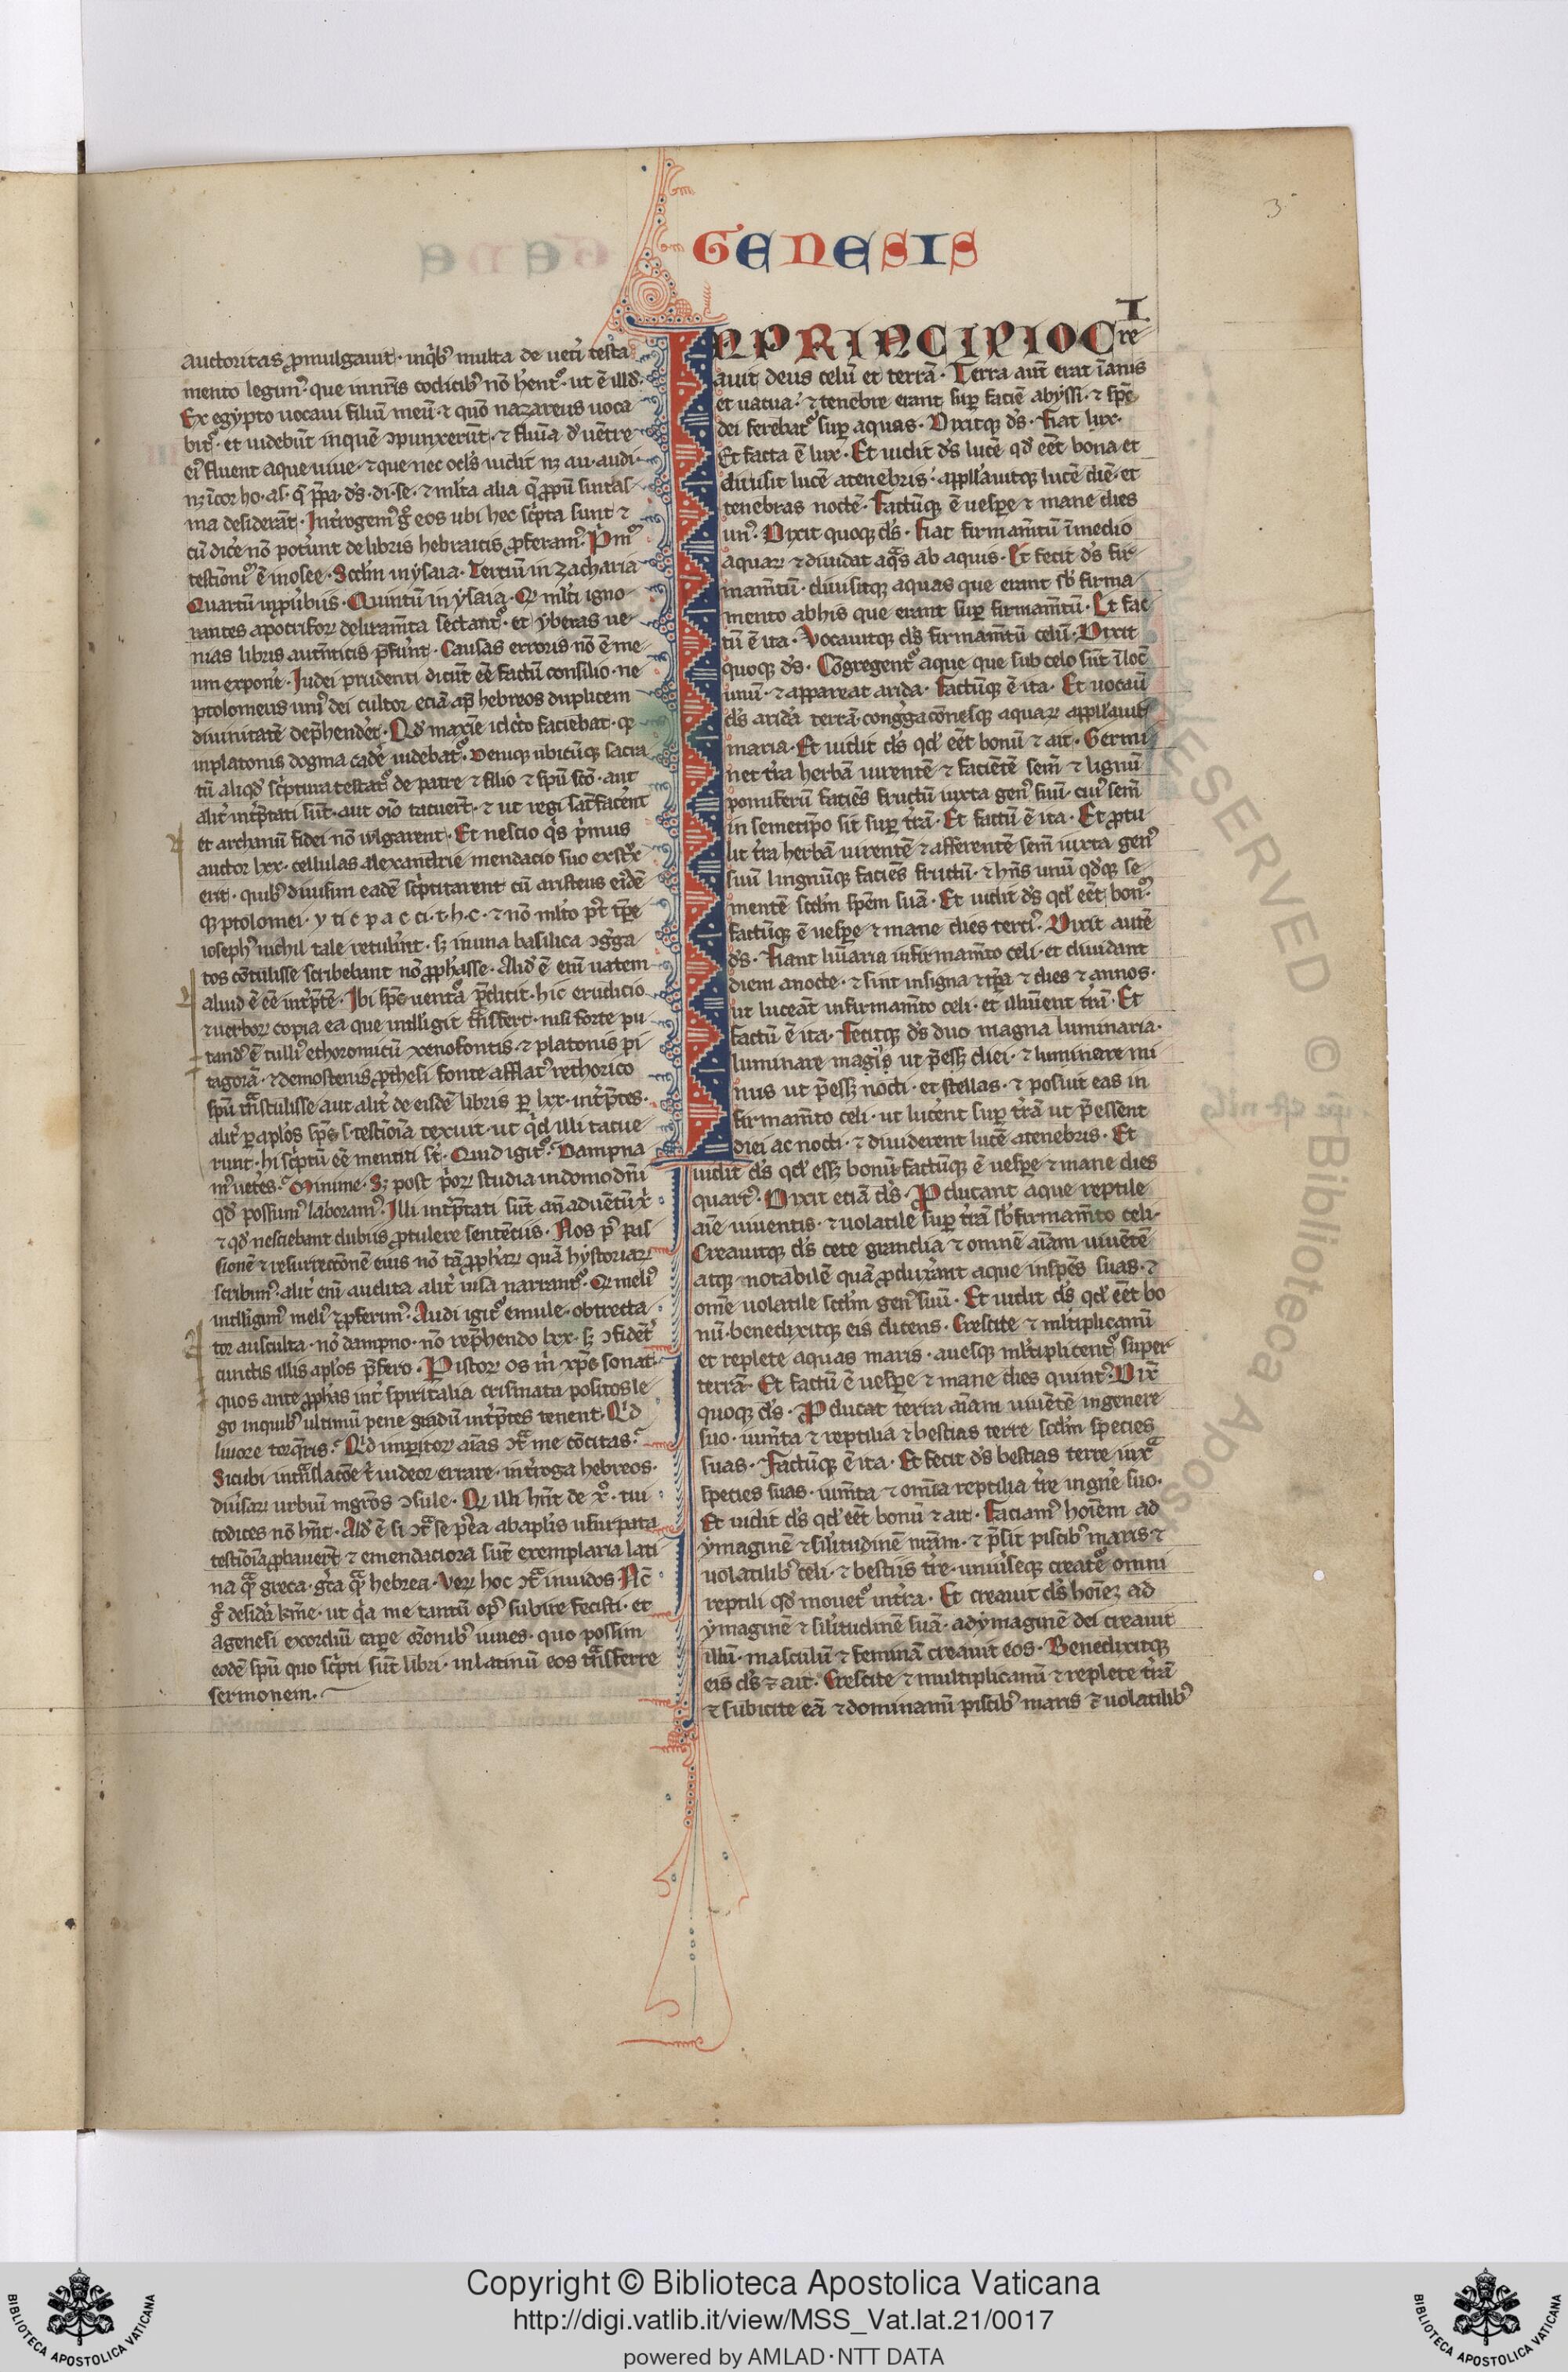 3
GENESIS
auctoritas ꝓmulgauit· inq̇bꝰ multa de uet̾i testa
mento legimꝰ· que innr̄is codicibꝰ nō h̾ent᷑· ut ē illđ·
Ex egypto uocaui filiū meū· ⁊ quō nazareus uoca
bit᷑· et uidebūt inquē ↄpunxerūt· ⁊ flumīa đ uētre
eiꝰ fluent aque uiue· ⁊ que nec ocl̾s uidit nꝫ au· audi·
nꝫ īcor ho· as· q̄ p̄pa· đs· di· se· ⁊ ml̾ta alia q̄ ꝓpū sintas
ma desiderāt· Int̾rogemꝰ g̊ eos ubi hec sc̾pta sunt ⁊
cū dic̾e nō pot̾unt de libris hebraicis ꝓferamꝰ· P̾mū
testīoniū ē inosee· Scđm inysaia· Tertiū in zacharia
Quartū inꝓu̾biis· Quintū in ysaia· Qꝛ ml̾ti igno
rantes apocrifoꝝ deliram̄ta sectant᷑· et yberas ne
nias libris autn̄ticis p̄fe̾rūt· Causas erroris nō ē me
um expone̾· Iudei prudenti dicūt ēē factū consilio· ne
ptolomeus uniꝰ dei cultor eciā ap̄ hebreos duplicem
diuinitatē dep̄hender̾t· Qđ maxīe iccirco faciebat· qꝛ
inplatonis dogma cade̾ uidebat᷑· Denique ubicūqꝫ sacra
tū aliqđ sc̾ptura testat᷑ de patre ⁊ filio ⁊ spū sc̄o· aut
alit̾ int̾p̄tati sūt· aut oīo tacuer̄t· ⁊ ut regi satīsface̾nt
et archanū fidei nō wlgarent· Et nescio q̇s p̾mus
auctor lxx· cellulas alexandrie mendacio suo exstꝛ̄x
erit· quibꝰ diuisim eadē sc̾ptitarent cū aristeus eiꝰdē
qꝫ ptolomei· y t i c p a c c i· t· h· c· ⁊ nō ml̾to p̾t tp̄re
iosephꝰ nichil tale retule̾nt· sꝫ inuna basilica ↄg̾ga
tos cōtulisse scribebant nō ꝓphasse· Aliđ ē enī uatem
aliud ē ēē int̾p̄tē· Ibi sp̄c uentᷓa p̄dicit· hic erudicio
⁊ uerboꝝ copia ea que intell̾igit tᷓnsfert· nisi forte pu
tandꝰ ē tulliꝰ echoromicū xenofontis· ⁊ platonis pi
tagorā· ⁊ demostenis ꝓthesi fonte afflatꝰ rethorico
spū tᷓnstulisse aut alit̾ de eisdē libris ꝑ lxx· int̾p̄tes·
alit̾ ꝑ apl̾os sp̄c s· testīoīa texuit· ut qđ illi tacue
runt· hi sc̾ptū ēē mentiti sī̄t· Quid igit᷑· Dampna
mꝰ uete̾s· Minime· Sꝫ post p̾oꝝ studia indomo dn̄i
qđ possumꝰ laboramꝰ· Illi int̾p̄tati sūt an̄ aduētū xp̄i
⁊ qđ nesciebant dubiis ꝓtulere sentēciis· Nos pꝰ pas
sionē ⁊ resurrectōnē eius nō tā ꝓph̾aꝝ quā hystoriaꝝ
scribimꝰ· alit̾ enī audita alit̾ uisa narrant᷑· Qꝛ meliꝰ
intelligimꝰ meliꝰ ⁊ ꝓferimꝰ· Audi igit᷑ emule· obtrecta
tor ausculta· nō dampno· nō rep̄hendo lxx· sꝫ ↄfidēt̾
cunctis illis apl̾os p̄fero· P istoꝝ os m̾ xp̄c sonat·
quos ante ꝓph̾as int̾ spiritalia crismata positos le
go inquibꝰ ultimū pene gradū int̾p̄tes tenent· Qđ
liuore torq̄ris· Qđ imꝑitoꝝ aīas ↄtᷓ me cōcitas·
Sicubi intᷓnslacōe t̾ uideor errare· int̾roga hebreos·
diu̾saꝝ urbiū mgr̄os ↄsule· Qꝛ illi hn̄t de xp̄o· tui
codices nō hn̄t· Alđ ē si ↄtᷓ se p̾ea abapl̾is usurpata
testīoīa ꝓbauer̄t ⁊ emendaciora sūt exemplaria lati
na qᷓ greca· g̾ca qᷓ hebrea· Veꝝ hoc ↄtᷓ inuidos· Nc̄
g̊ deside̾i km̄e· ut q̇a me tantū opꝰ subire fecisti· et
agenesi exordiū capere or̄onibꝰ iuues· quo possim
eodē spū quo sc̾pti sūt libri· inlatinū eos tᷓnsferre
sermonem·
I
NPRINCIPIO C re
auit deus celū et terrā· Terra aut̄ erat īanis
et uacua· ⁊ tenebre erant suꝑ faciē abyssi· ⁊ sp̄c
dei ferebat᷑ suꝑ aquas· Dixitqꝫ đs· Fiat lux·
Et facta ē lux· Et uidit đs lucē qđ eēt bona et
diuisit lucē atenebris· appllauitqꝫ lucē diē· et
tenebras noctē· Factūqꝫ ē uespe ⁊ mane dies
unꝰ· Dixit quoqꝫ đs· Fiat firmam̄tū īmedio
aquaꝝ ⁊ diuidat aqᷓs ab aquis· Et fecit đs fir
mam̄tū· diuisitqꝫ aquas que erant sb̾ firma
mento abhis que erant suꝑ firmam̄tū· Et fac
tū ē ita· Vocauitqꝫ đs firmam̄tū celū· Dixit
quoqꝫ đs· Cōgregent᷑ aque que sub celo sūt īlocū
unū· ⁊ appareat arida· Factūqꝫ ē ita· Et uocauit
đs aridā terrā· congᷓgacōnesqꝫ aquaꝝ appllauit
maria· Et uidit đs qđ eēt bonū ⁊ ait· Germi
net t̾ra herbā uirentē ⁊ faciētē sem̄ ⁊ lignū
pomiferū faciēs fructū iuxta genꝰ suū· cuiꝰ sem̄
in semetip̄o sit suꝑ t̾rā· Et factū ē ita· Et ꝓtu
lit t̾ra herbā uirentē ⁊ afferentē sem̄ iuxta genꝰ
suū lignūqꝫ faciēs fructū· ⁊ hn̄s unū qđqꝫ se
mentē scđm spēm suā· Et uidit đs qđ eēt bonū·
factūqꝫ ē uespe ⁊ mane dies terciꝰ· Dixit autē
đs· Fiant luīaria infirmam̄to celi· et diuidant
diem anocte· ⁊ sint insigna ⁊ tp̄ra ⁊ dies ⁊ annos·
ut luceāt infirmam̄to celi· et illuīent t̾rā· Et
factū ē ita· Fecitqꝫ đs duo magna luminaria·
luminare magis ut p̄ēēꝫ diei· ⁊ luminare mi
nus ut p̄ēēꝫ nocti· et stellas· ⁊ posuit eas in
firmam̄to celi· ut lucent suꝑ t̾rā ut p̄essent
diei ac nocti· ⁊ diuiderent lucē atenebris· Et
uidit đs qđ essꝫ bonū· factūqꝫ ē uespe ⁊ mane dies
quartꝰ· Dixit eciā đs· Pducant aque reptile
aīe uiuentis· ⁊ uolatile suꝑ t̾rā sb̾ firmam̄to celi·
Creauitqꝫ đs cete grandia ⁊ omnē aīam uiuētē
atqꝫ motabilē quā ꝓduxe̾ant aque inspēs suas· ⁊
omē uolatile scđm genꝰ suū· Et uidit đs qđ eēt bo
nū· benedixitqꝫ eis dicens· Crescite ⁊ ml̾tiplicamī
et replete aquas maris· auesqꝫ ml̾tiplicent᷑ super
terrā· Et factū ē uespe ⁊ mane dies quintꝰ· Dix̄
quoqꝫ đs· Pducat terra aīam uiuētē ingenere
suo· ium̄ta ⁊ reptilia ⁊ bestias terre scđm species
suas· Factūqꝫ ē ita· Et fecit đs bestias terre iuxᷓ
species suas· ium̄ta ⁊ omīa reptilia t̾re ingn̾e suo·
Et uidit đs qđ eēt bonū ⁊ ait· Faciamꝰ hoīem ad
ymaginē ⁊ sil̾itudinē nr̄am· ⁊ p̄sit piscibꝰ maris ⁊
uolatilibꝰ celi· ⁊ bestiis t̾re· uniu̾seqꝫ creatᷓe omni
reptili qđ mouet᷑ int̾ra· Et creauit đs hoīeꝫ ad
ymaginē ⁊ sil̾itudinē suā· adymaginē dei creauit
illū· masculū ⁊ feminā creauit eos· Benedixitqꝫ
eis đs ⁊ ait· Crescite ⁊ multiplicamī ⁊ replete t̾rā
⁊ subicite eā ⁊ dominamī piscibꝰ maris ⁊ uolatilibꝰ
RESERVED © Biblioteca Apos
Copyright © Biblioteca Apostolica Vaticana
http://digi.vatlib.it/view/MSS_Vat.lat.21/0017
powered by AMLAD·NTT DATA
BIBLIOTECA APOSTOLICA VATICANA
BIBLIOTECA APOSTOLICA VATICANA